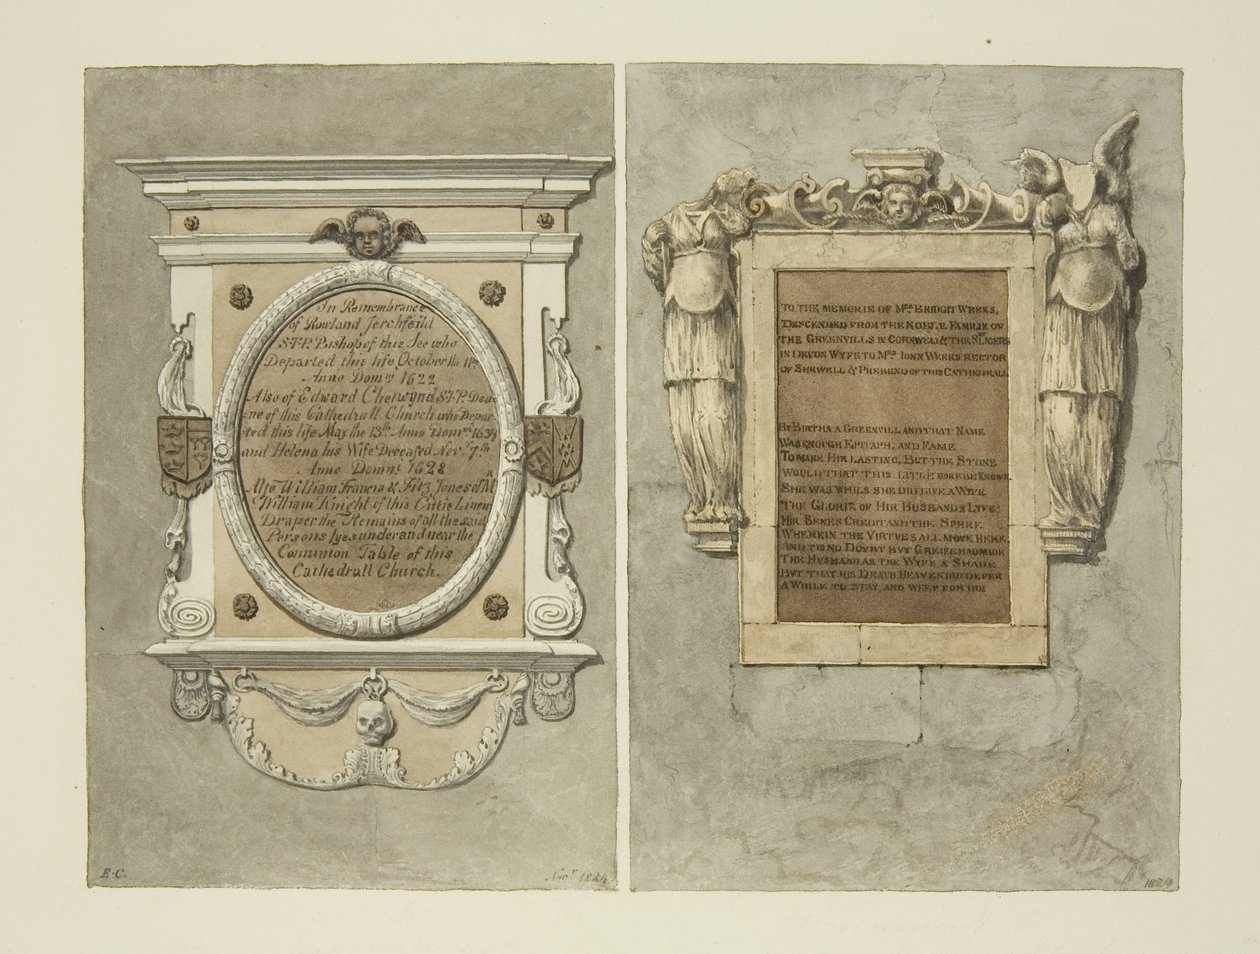 In Remembrance
of Rowland Serchfeild
S.T.P. Bishop of this See who
Departed this life October the 11th
Anno Domni 1622
Also of Edward Chetwynd S.T.P. Dea-
ne of this Cathedrall Church who Depar-
ted this life May the 13th Anno Domni 1639
and Helena his Wife Deceased Novr 7th
Anno Domni 1628
Also William Francis & Fitz Jones of M
William Knight of this Cittie Linen
Draper the Remains of all the said
Persons lyes under and near the
Common Table of this
Cathedrall Church.
E.C.
1824
TO THE MEMORIE OF MRS BRIDGIT WEEKS,
DESCENDED FROM THE NOBLE FAMILIE OF
THE GREENVILLS IN CORNWELL & THE ST LIGERS
IN DEVON WYFE TO MR JOHN WEEKS RECTOR
OF SHEWELL & PREBEND OF THIS CATHEDRALL
BY BIRTH A GREENVILL AND THAT NAME
WAS ENOUGH EPITAPH, AND FAME
TO MAKE HIR LASTING, BUT THE STONE
WOULD THAT THIS LITLE MORE BE KNOWN
SHE WAS WHILS SHE DID LIVE A WYFE
THE GLORIE OF HIR HUSBANDS LYFE
HIR SEXES CREDIT AND THE SPHRE
WHEREIN THE VIRTUES ALL MOVE HERE
AND TIS NO DOUBT BUT GREIFE HAD MADE
THE HUSBAND AS THE WYFE A SHADE
BUT THAT HIS DEATH HEAVEN DID DEFER
A WHILE TO STAY, AND WEEP FOR HIR
1824